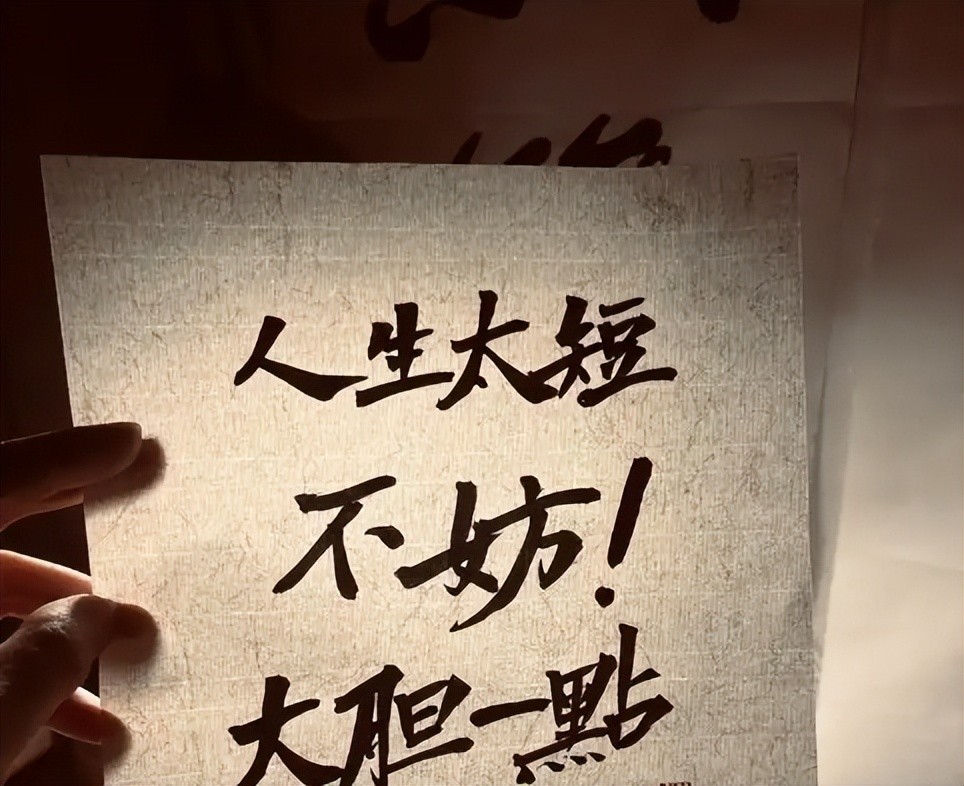 人生太短
不妨！
大胆一點